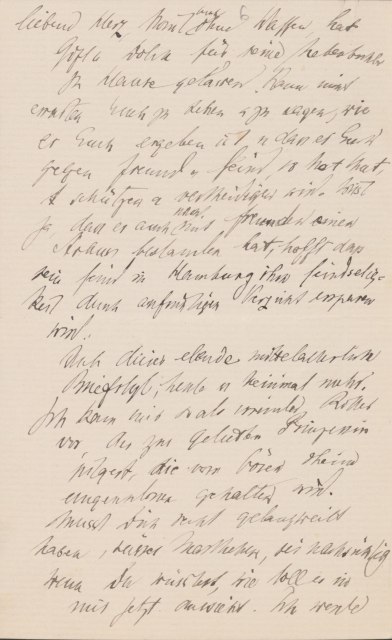 liebend Herz kommt ohne Waffen hat
Gift u Dolch für seine Nebenbuhler
zu Hause gelassen. Kann nicht
Euch zu sehen u zu sagen, wie
er Euch ergeben ist u dass er Euch
gegen Freund u Feind, so hat hat,
schützen u vertheidigen wird. Wisst
ja dass er auch mit Freunden einen
Strauss bestanden hat, hofft dass
sein Feind in Hamburg ihm Feindselig-
keit durch aufrichtigen Verzicht ersparen
wird.
dieser elende mittelalterliche
Briefstyl; heute u keinmal mehr.
Ich kam mir so als Ritter
vor der zur geliebten Prinzessin
pilgert, die vom bösen
gehalten wird.
Musst Dich recht gelangweilt
haben, süsses Marthchen, sei nachsichtig
wenn Du wüsstest, wie toll es in
mir jetzt aussieht. Ich werde